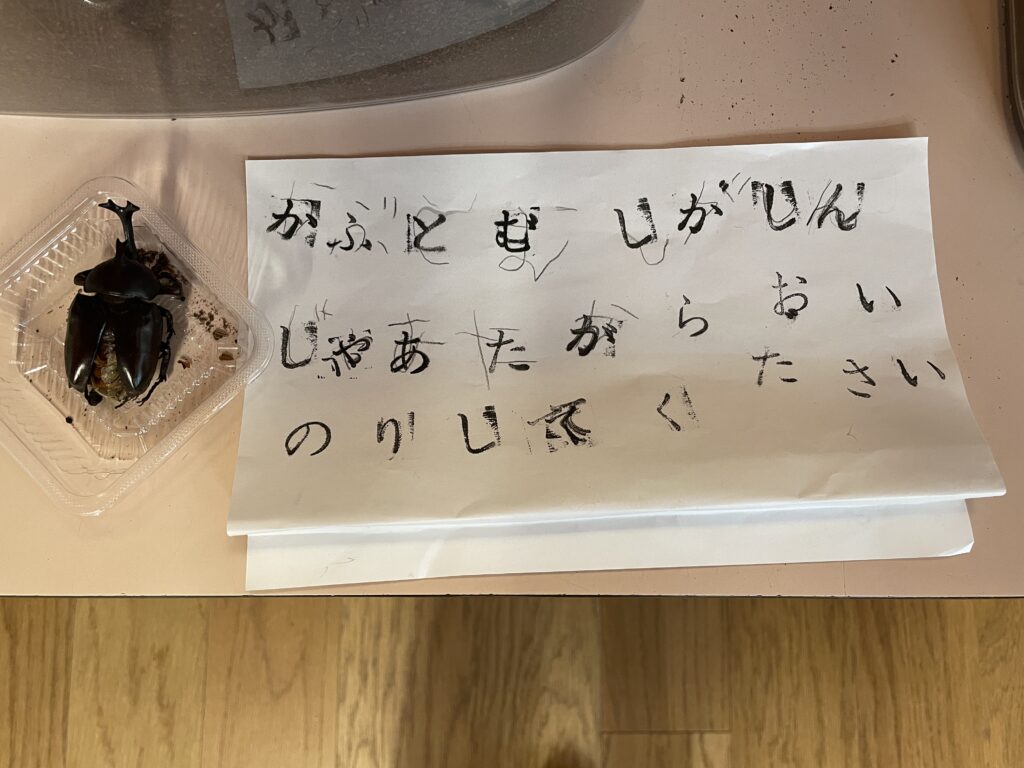 かぶとむしがしん
じゃあたからおい
のりしてくたさい